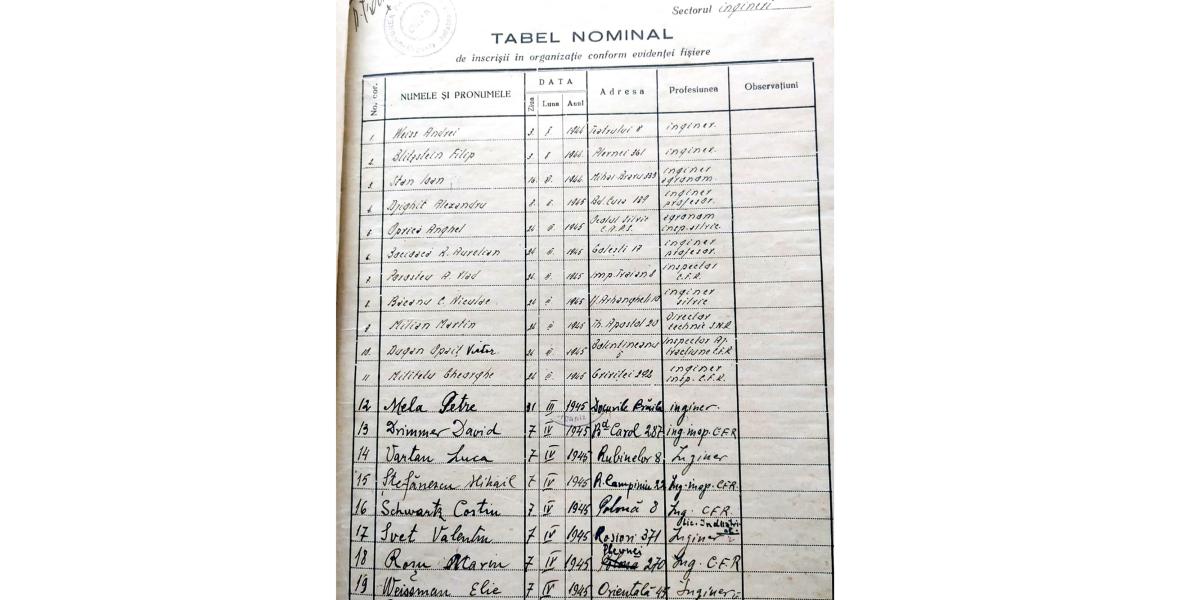 Sectorul ingineri
TABEL NOMINAL
de înscrișii în organizație conform evidenței fișiere
No. cor.
NUMELE ȘI PRONUMELE
DATA
Ziua Luna Anul
Adresa
Profesiunea
Observațiuni
1. Weiss Andrei 3. 1944 Teatrului 8 inginer.
2. Blitzstein Filip 3 1944. Plevnei 361 inginer.
3. Stan Ioan 1944. Mihai Bravu 333 inginer agronom.
4. Djighit Alexandru 1945 Bd. Cuza 189 inginer profesor.
5. Oprică Anghel 24 1945 silvic C.A.P.S. agronom insp. silvic.
6. R. Aurelian 24 1945 Golești 17 inginer profesor.
7. A. Vlad 24 1945 Imp. Traian 8 inspector C.F.R.
8. Băcanu C. Niculae 24 1945 Arhangheli 10 inginer silvic
9 Milian Martin 24 1945 Th. Apostol 20 Director technic
10. Dugan Opaiț Victor 24 1945 Bolintineanu 5 Inspector Aj. tracțiune C.F.R
11 Militelu Gheorghe 24 1945 Griviței 292 inginer insp. C.F.R.
12 Mela Petre 31 III 1945 Docurile Brăila inginer.
13 Drimmer David 7 IV 1945 Bd Carol 287 ing insp. C.F.R
14 Vartan Luca 7 IV 1945 Rubinelor 8. Inginer
15 Ștefănescu Mihail 7 IV 1945 R. Campiniu 22 Ing. insp. C.F.R.
16 Schwartz Costin 7 IV 1945 Polonă 8 Ing. C.F.R.
17 Svet Valentin 7 IV 1945 Rosiori 371 Inginer Lic. Industrial.
18 Roșu Marin 7 IV 1945 Plevnei 270 Ing. C.F.R
19 Weissman Elie 7 IV 1945 Orientală 45 Inginer